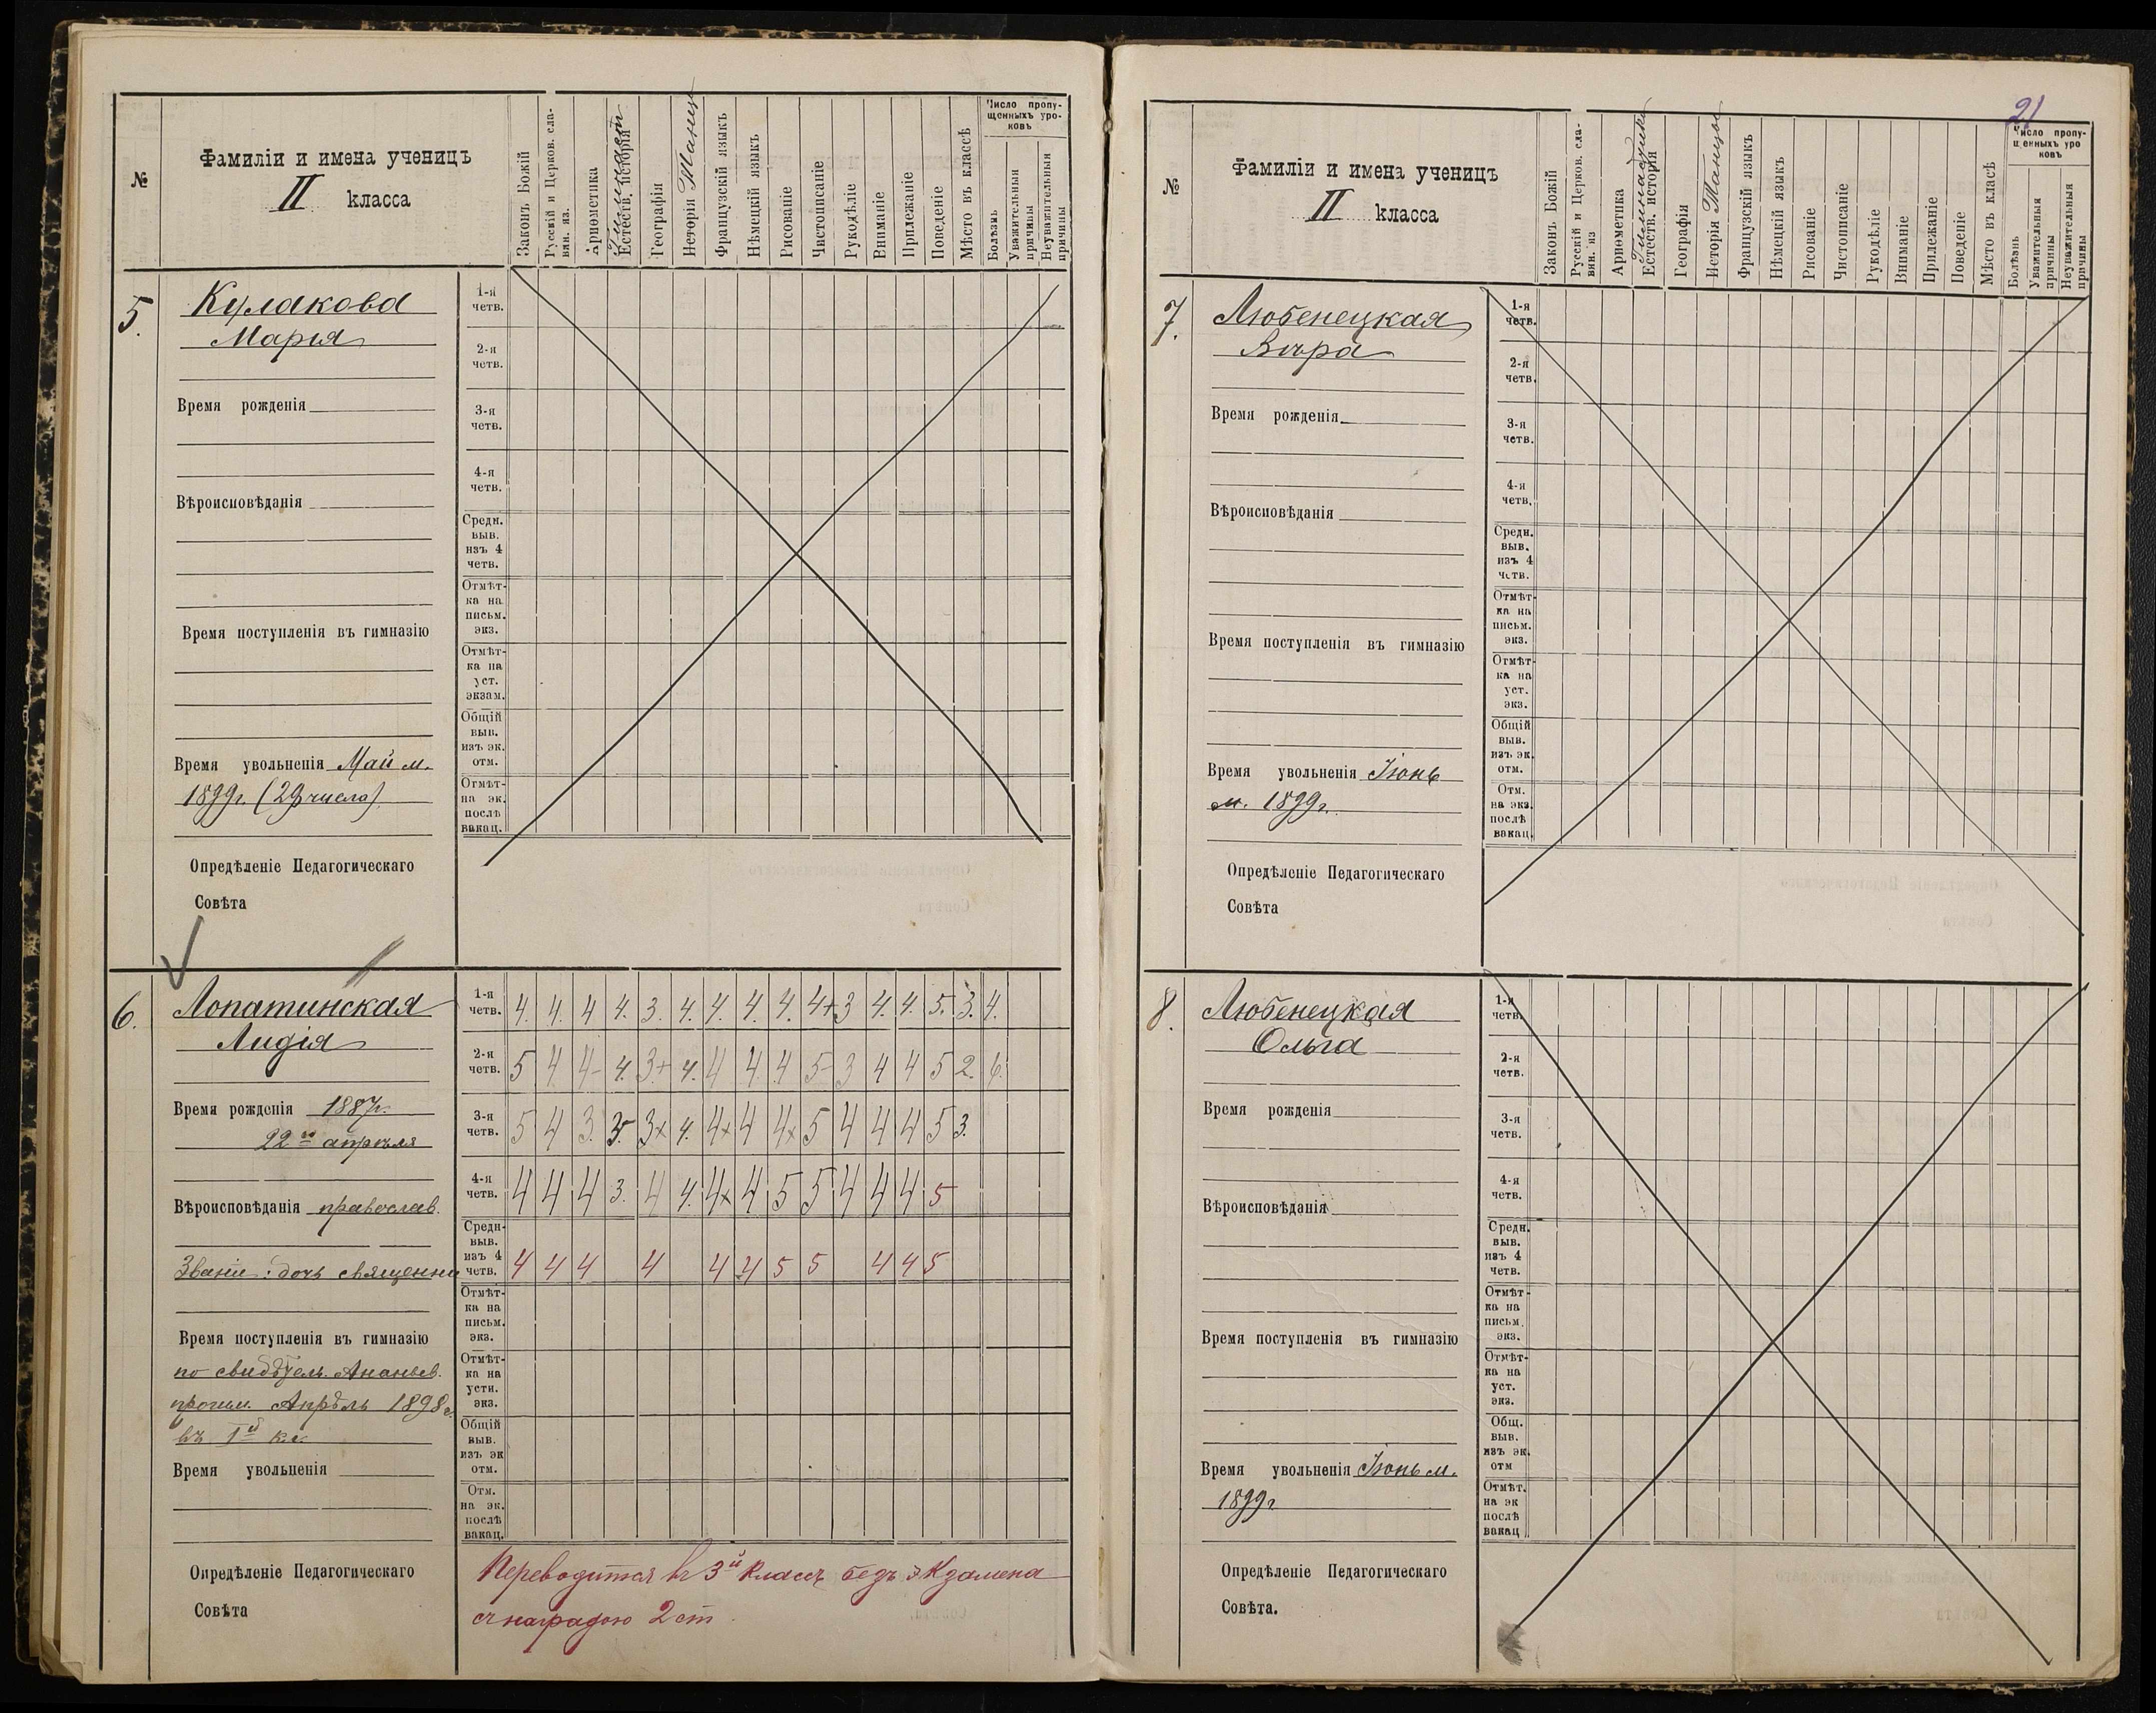 №
Фамиліи и имена ученицъ
II класса
Законъ Божій
Русскій и Церков. сла-
вян. яз.
Ариѳметика
Гимнаст
Естеств. исторія
Географія
Исторія Танцы
Французскій языкъ
Нѣмецкій языкъ
Рисованіе
Чистописаніе
Рукодѣліе
Вниманіе
Прилежаніе
Поведеніе
Мѣсто въ классѣ
Число пропу-
щенныхъ уро-
ковъ
Болѣзнь
Уважительныя
причины
Неуважительныя
причины
5.
Кулакова
Марія
Время рожденія
Вѣроисповѣданія
Время поступленія въ гимназію
Время увольненія Май м.
1899г. (29 числа).
Опредѣленіе Педагогическаго
Совѣта
1-я
четв.
2-я
четв.
3-я
четв.
4-я
четв.
Средн.
выв.
изъ 4
четв.
Отмѣт-
ка на
письм.
экз.
Отмѣт-
ка на
уст.
экзам.
Общій
выв.
изъ эк.
отм.
Отмѣт-
на эк.
послѣ
вакац.
6.
Лопатинская
Лидія
Время рожденія 1887г.
22го апрѣля
Вѣроисповѣданія православ.
Званіе: дочь священни
Время поступленія въ гимназію
по свидѣтель. Ананьев.
прогим. Апрѣль 1898г.
въ 1й кл.
Время увольненія
Опредѣленіе Педагогическаго
Совѣта
1-я
четв. 4. 4. 4 4. 3. 4. 4. 4. 4. 4+ 3 4. 4. 5. 3. 4.
2-я
четв. 5 4 4- 4. 3+ 4. 4 4. 4 5- 3 4 4 5 2. 6.
3-я
четв. 5 4 3. 3. 3+ 4. 4+ 4 4+ 5 4 4 4 5 3.
4-я
четв. 4 4 4 3. 4 4. 4+ 4 5 5 4 4 4 5
Средн-
выв.
изъ 4
четв. 4 4 4 4 4 4 5 5 4 4 5
Отмѣт-
ка на
письм.
экз.
Отмѣт-
ка на
устн.
экз.
Общій
выв.
изъ эк
отм.
Отм.
на эк.
послѣ
вакац.
Переводится въ 3й классъ безъ экзамена
съ наградою 2 ст.
21
№
Фамиліи и имена ученицъ
II класса
Законъ Божій
Русскій и Церков. сла-
вян. яз
Ариѳметика
Гимнастика
Естеств. исторія
Географія
Исторія Танцы
Французскій языкъ
Нѣмецкій языкъ
Рисованіе
Чистописаніе
Рукодѣліе
Вниманіе
Прилежаніе
Поведеніе
Мѣсто въ класѣ
Число пропу-
щенныхъ уро
ковъ
Болѣзнь
Уважительныя
причины
Неуважительныя
причины
7.
Любенецкая
Вѣра
Время рожденія
Вѣроисповѣданія
Время поступленія въ гимназію
Время увольненія Іюнь
м. 1899г.
Опредѣленіе Педагогическаго
Совѣта
1-я
четв.
2-я
четв.
3-я
четв.
4-я
четв.
Средн.
выв.
изъ 4
четв.
Отмѣт-
ка на
письм.
экз.
Отмѣт-
ка на
уст.
экз.
Общій
выв.
изъ эк.
отм.
Отм.
на экз.
послѣ
вакац.
8.
Любенецкая
Ольга
Время рожденія
Вѣроисповѣданія
Время поступленія въ гимназію
Время увольненія Іюнь м.
1899г
Опредѣленіе Педагогическаго
Совѣта.
1-я
четв.
2-я
четв.
3-я
четв.
4-я
четв.
Средн.
выв.
изъ 4
четв.
Отмѣт-
ка на
письм.
экз.
Отмѣт-
ка на
уст.
экз.
Общ.
выв.
изъ эк.
отм
Отмѣт.
на эк
послѣ
вакац